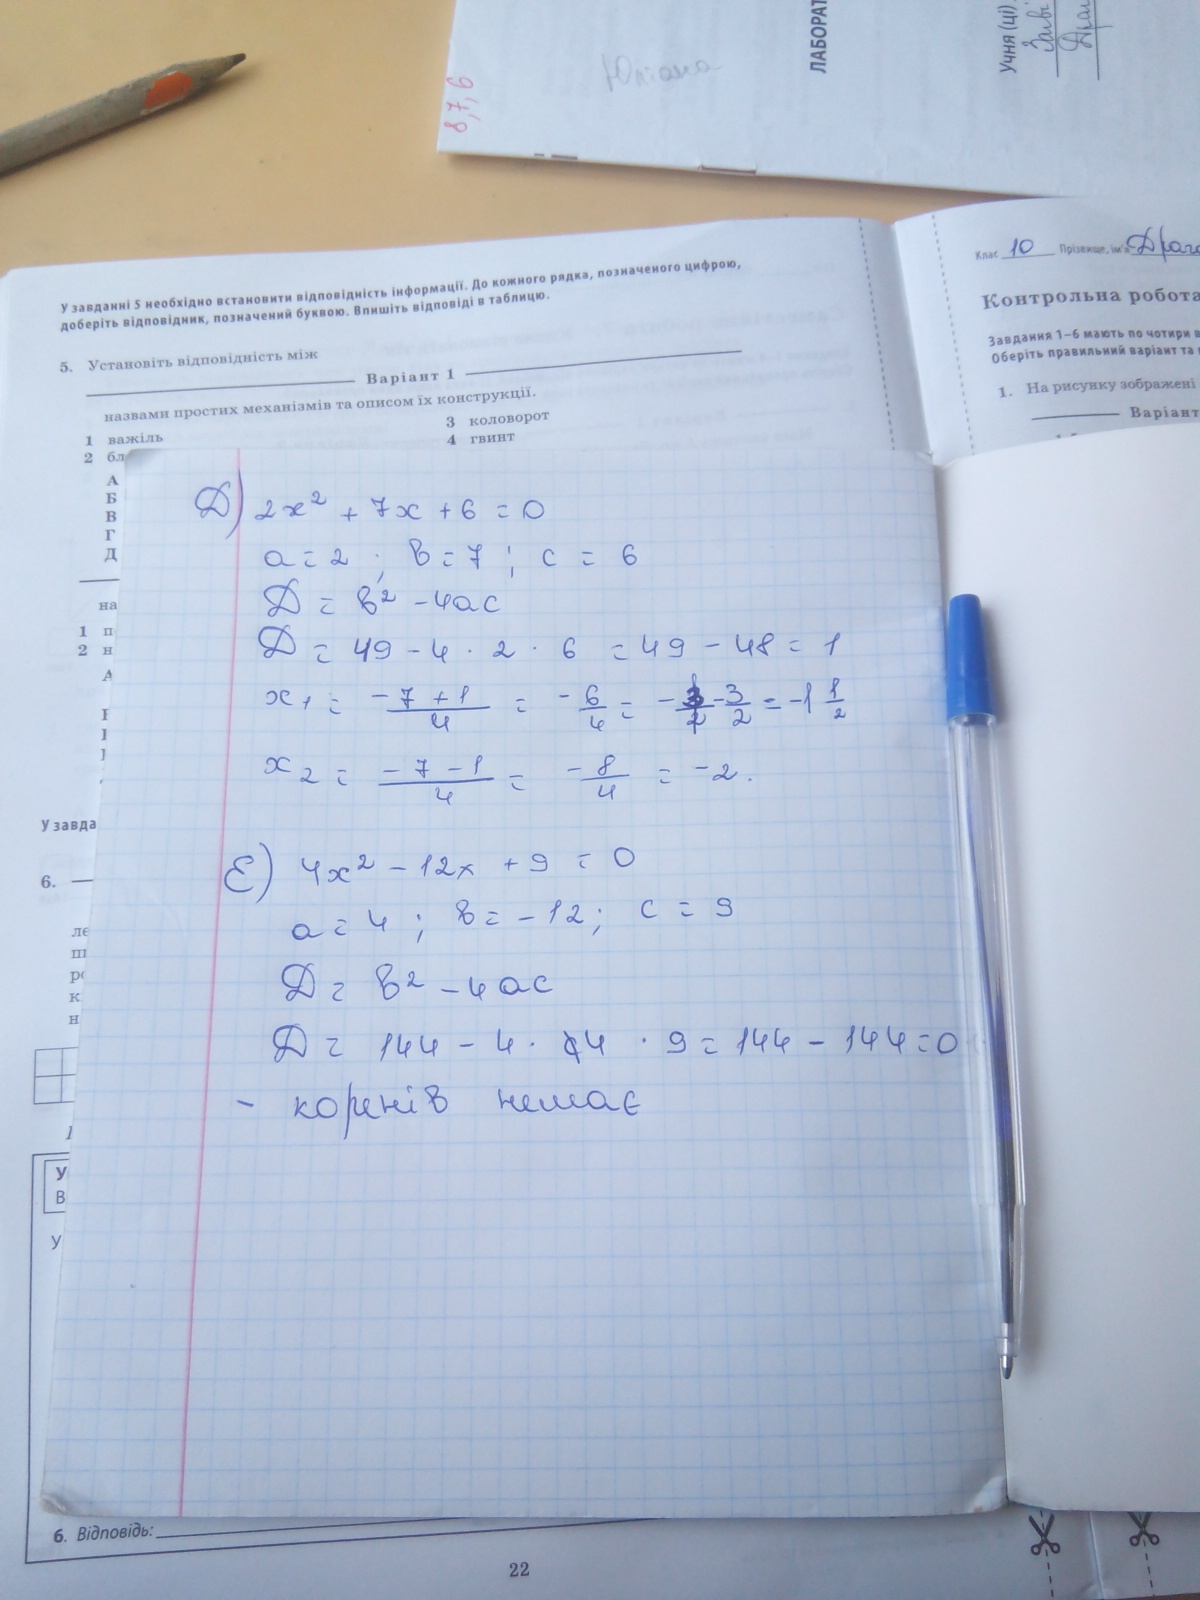 8,7,6
Юліана
ЛАБОРАТ
Учня (ці)
У завданні 5 необхідно встановити відповідність інформації. До кожного рядка, позначеного цифрою,
доберіть відповідник, позначений буквою. Впишіть відповіді в таблицю.
5. Установіть відповідність між
Варіант 1
назвами простих механізмів та описом їх конструкції.
1 важіль
3 коловорот
2 бл
4 гвинт
А
Б
В
Г
Д
на
1 п
2 н
А
У завда
6.
ле
ш
к
н
У
В
У
6. Відповідь:
22
Клас 10 Прізвище, ім'я Драго
Контрольна робота
Завдання 1–6 мають по чотири в
Оберіть правильний варіант та
1. На рисунку зображені
Варіант
Д) 2x² + 7x + 6 = 0
a = 2 ; в = 7 ; c = 6
Д = в² - 4ac
Д = 49 - 4 · 2 · 6 = 49 - 48 = 1
x₁ = -7+1/4 = -6/4 = -3/2 = -1 1/2
x₂ = -7-1/4 = -8/4 = -2.
Е) 4x² - 12x + 9 = 0
a = 4 ; в = -12; c = 9
Д = в² - 4ac
Д = 144 - 4 · 4 · 9 = 144 - 144 = 0
- коренів немає